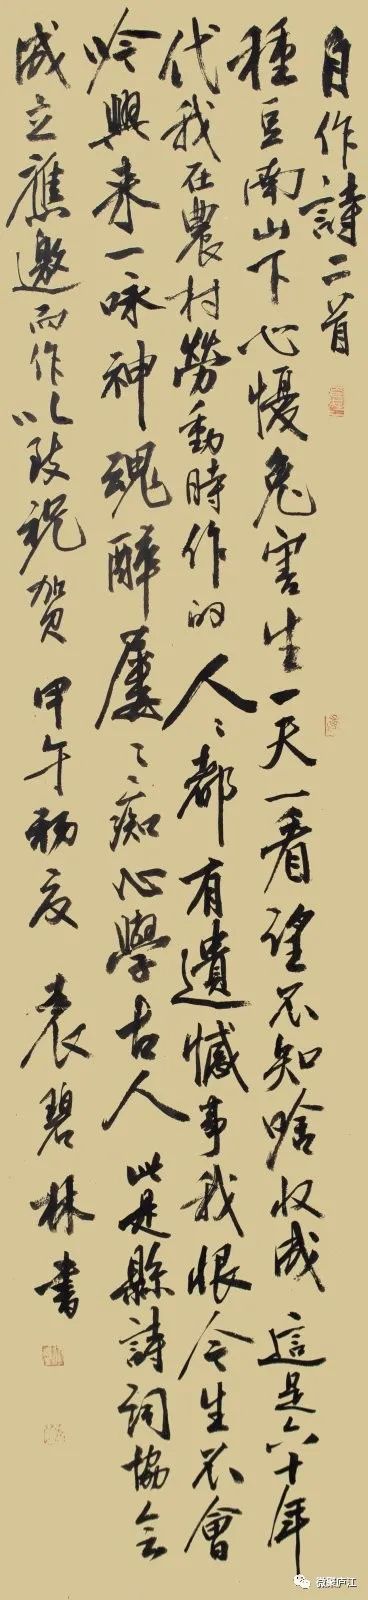 自作詩二首
種豆南山下心懮兔害生一天一看望不知啥收成 這是六十年
代我在農村勞動時作的 人々都有遺憾事我恨今生不會
吟興来一咏神魂醉屡々痴心學古人 此是縣詩詞協会
成立應邀而作以致祝贺 甲午初夏 袁碧林書
微聚庐江